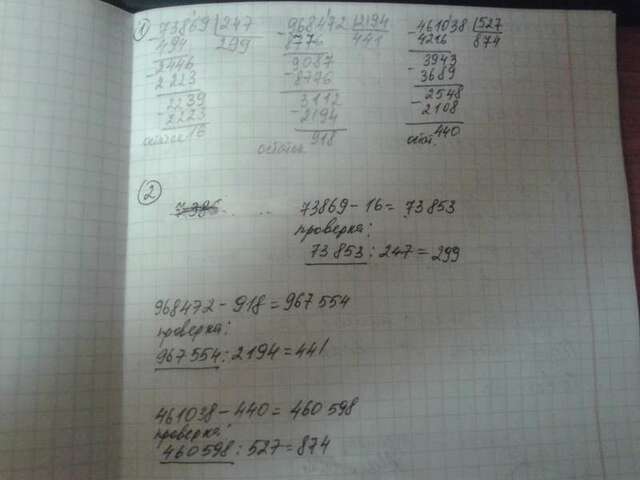 1
73869 | 247
- 494 299
- 2446
2223
- 2239
2223
остаток 16
- 968472 | 2194
8776 441
- 9087
8776
- 3112
2194
остаток 918
- 461038 | 527
4216 874
- 3943
3689
- 2548
2108
ост. 440
2
7386
73869 - 16 = 73853
проверка:
73853 : 247 = 299
968472 - 918 = 967554
проверка:
967554 : 2194 = 441
461038 - 440 = 460598
проверка:
460598 : 527 = 874